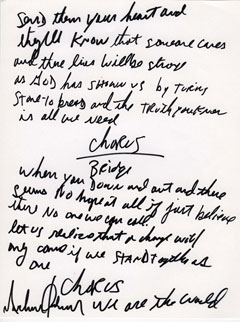 Send them your heart and
they'll know that someone cares
and there lives will be strong
as GOD has shown us by turing
stone to bread and the TRUTH
is all we need
Chorus
Bridge
When you down and out and there
seems no hope at all if just believe
there no one call
let us realize that a change will
come if we STAND together as
one
Chorus
We are the world